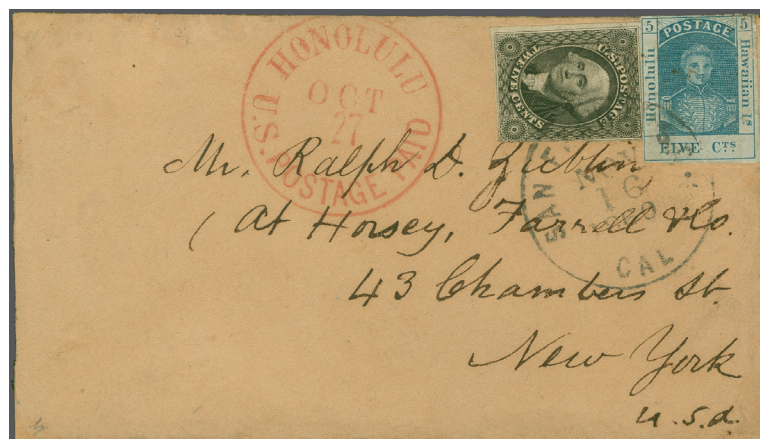 HONOLULU
OCT
27
U.S. POSTAGE PAID
U.S. POSTAGE
TWELVE
CENTS
5 POSTAGE 5
Honolulu
Hawaiian Is
FIVE CTS
SAN
NOV
16
CAL
Mr. Ralph D.
(At Horsey, Farrell & Co.
43 Chambers St.
New York
U.S.A.